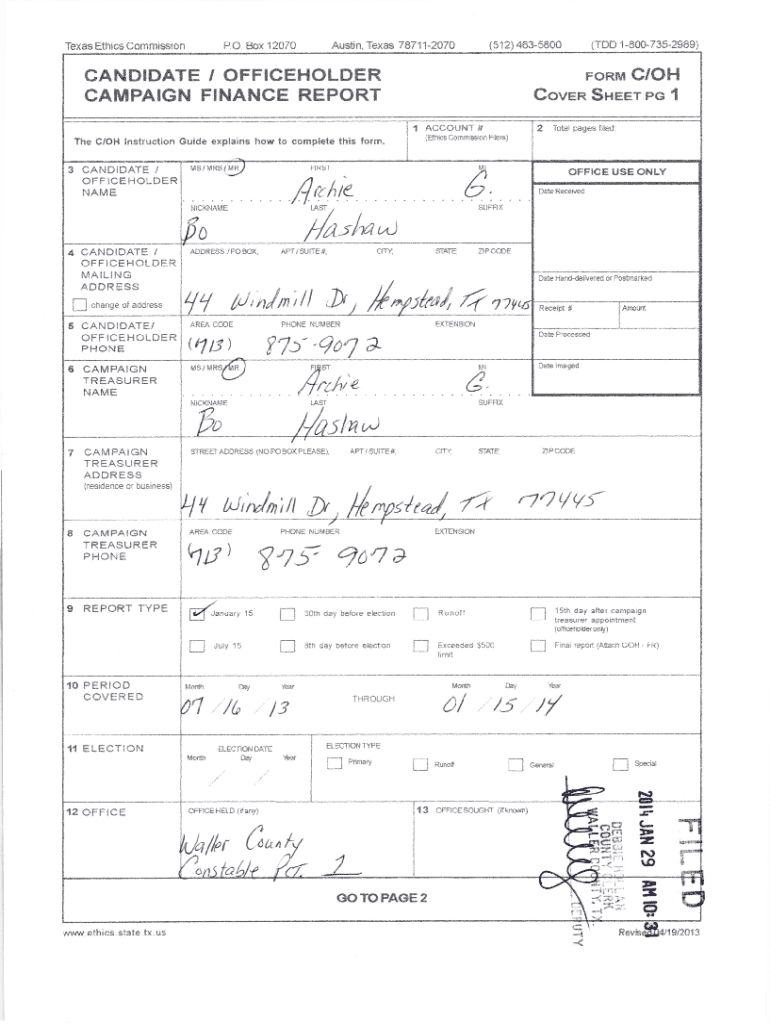 Texas Ethics Commission P.O. Box 12070 Austin, Texas 78711-2070 (512) 463-5800 (TDD 1-800-735-2989)
CANDIDATE / OFFICEHOLDER
CAMPAIGN FINANCE REPORT
FORM C/OH
COVER SHEET PG 1
The C/OH Instruction Guide explains how to complete this form.
1 ACCOUNT #
(Ethics Commission Filers)
2 Total pages filed:
3 CANDIDATE /
OFFICEHOLDER
NAME
MS / MRS / MR FIRST MI
Archie G.
NICKNAME LAST SUFFIX
Bo Hashaw
OFFICE USE ONLY
Date Received
4 CANDIDATE /
OFFICEHOLDER
MAILING
ADDRESS
change of address
ADDRESS / PO BOX; APT / SUITE #; CITY; STATE; ZIP CODE
44 Windmill Dr, Hempstead, TX 77445
Date Hand-delivered or Postmarked
Receipt # Amount
5 CANDIDATE/
OFFICEHOLDER
PHONE
AREA CODE PHONE NUMBER EXTENSION
(713) 875-9072
Date Processed
6 CAMPAIGN
TREASURER
NAME
MS / MRS / MR FIRST MI
Archie G.
NICKNAME LAST SUFFIX
Bo Hashaw
Date Imaged
7 CAMPAIGN
TREASURER
ADDRESS
(residence or business)
STREET ADDRESS (NO PO BOX PLEASE); APT / SUITE #; CITY; STATE; ZIP CODE
44 Windmill Dr, Hempstead, TX 77445
8 CAMPAIGN
TREASURER
PHONE
AREA CODE PHONE NUMBER EXTENSION
(713) 875-9072
9 REPORT TYPE
January 15 30th day before election Runoff 15th day after campaign
treasurer appointment
(officeholder only)
July 15 8th day before election Exceeded $500
limit
Final report (Attach C/OH - FR)
10 PERIOD
COVERED
Month Day Year THROUGH Month Day Year
07 / 16 / 13 01 / 15 / 14
11 ELECTION
ELECTION DATE
Month Day Year
/ /
ELECTION TYPE
Primary Runoff General Special
12 OFFICE
OFFICE HELD (if any)
Waller County
Constable Pct. 1
13 OFFICE SOUGHT (if known)
FILED
2014 JAN 29 AM 10:31
DEBBIE HOLLAN
COUNTY CLERK
WALLER COUNTY, TX.
DEPUTY
GO TO PAGE 2
www.ethics.state.tx.us Revised 04/19/2013